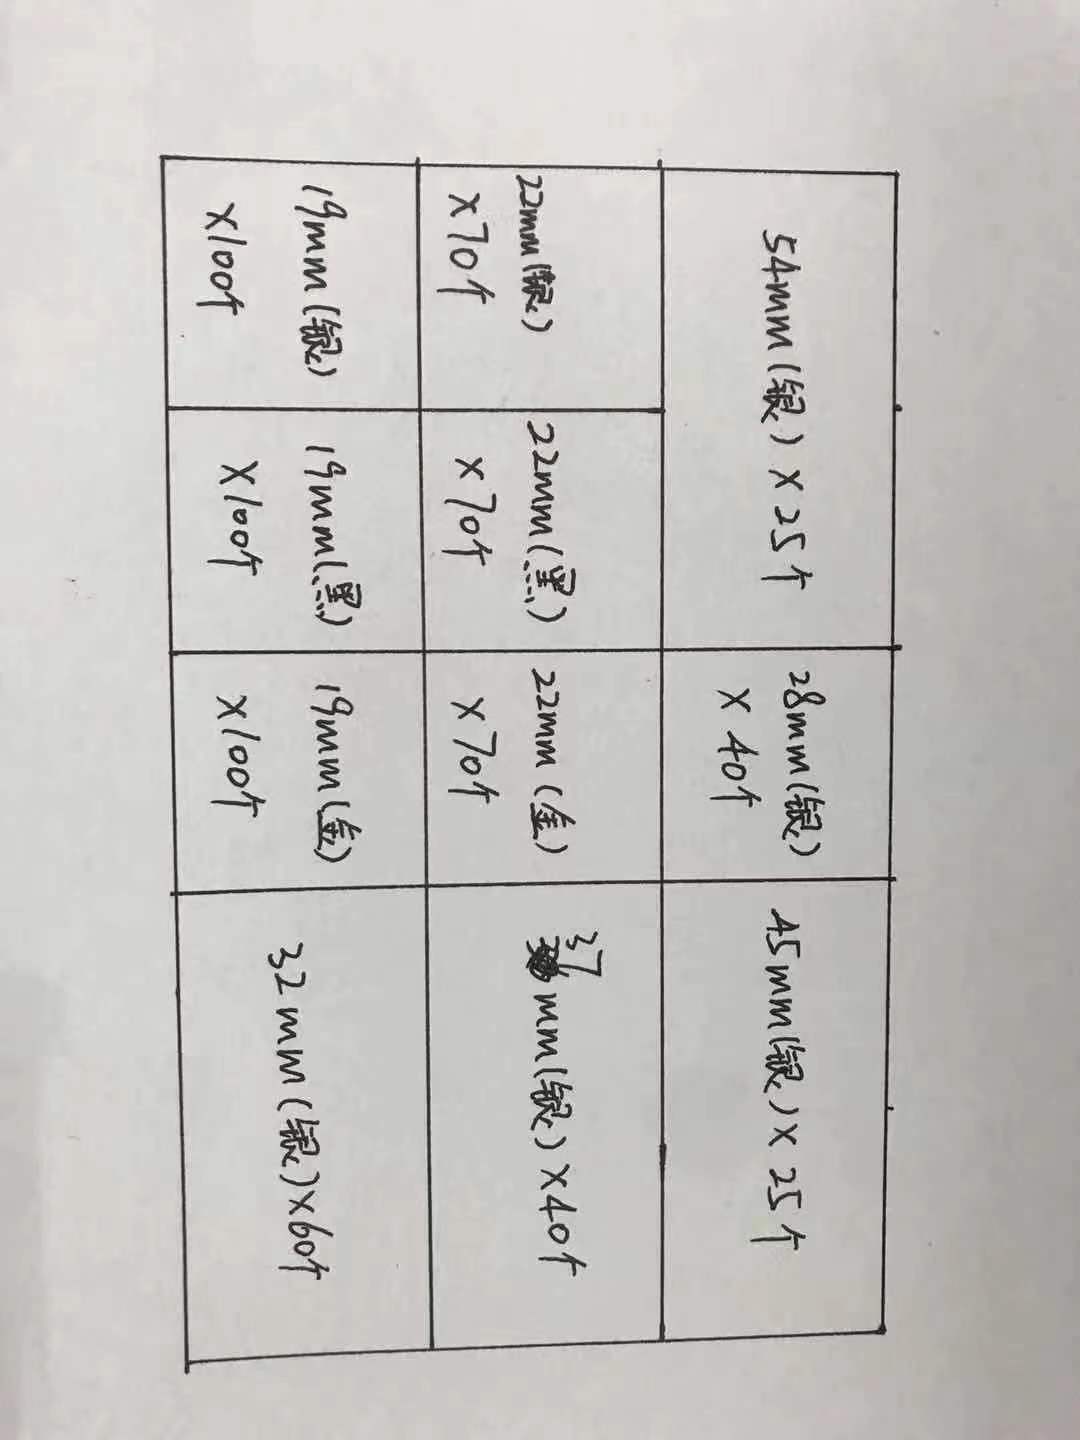 54mm(银)×25个
28mm(银)
×40个
45mm(银)×25个
22mm(银)
×70个
22mm(黑)
×70个
22mm(金)
×70个
37
mm(银)×40个
19mm(银)
×100个
19mm(黑)
×100个
19mm(金)
×100个
32mm(银)×60个